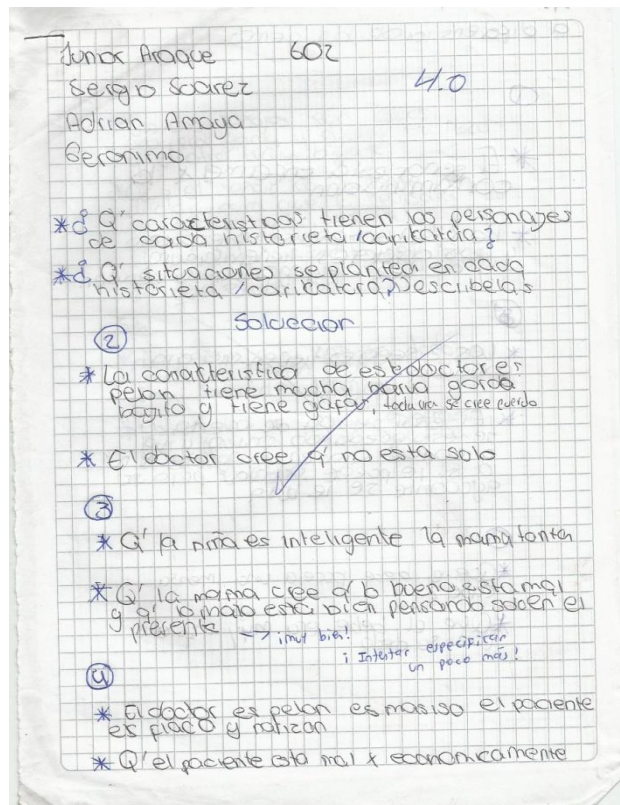 Junior Araque 602
Sergio Soarez 4.0
Adrian Amaya
Geronimo
*¿ Q' caracteristicas tienen los personages
de cada historieta /caricatura?
*¿ Q' sitcaciones se plantea en cada
historieta /caricatura? Descibelas
Solcecion
②
* La caracteristica de este doctor es
pelon tiene mucha barva gordo
bagito y tiene gafas, todavia se cree cuerdo
* El doctor cree q' no esta solo
③
* Q' la niña es inteligente la mama tonta
* Q' la mama cree q' lo bueno esta mal
y q' lo malo esta bien pensando solo en el
presente → ¡muy bien!
¡Intentar especificar
un poco más!
④
* El doctor es pelon es masiso el paciente
es flaco y narizon
* Q' el paciente esta mal x economicamente